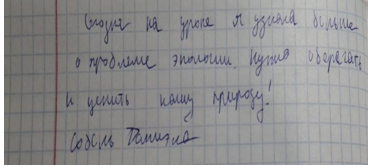 Сегодня на уроке я узнала больше
о проблеме экологии. Нужно оберегать
и ценить нашу природу!
Соболь